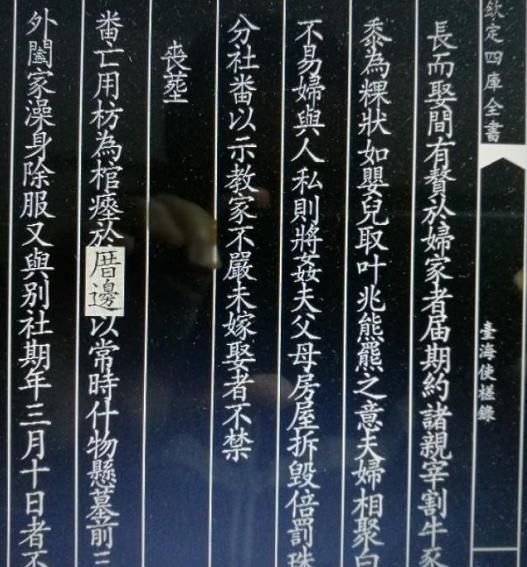 欽定四庫全書
臺海使槎錄
長而娶間有贅於婦家者届期約諸親宰割牛豕
黍為粿狀如嬰兒取叶兆熊羆之意夫婦相聚白
不易婦與人私則將姦夫父母房屋拆毀倍罰珠
分社畨以示教家不嚴未嫁娶者不禁
喪塟
畨亡用枋為棺瘞於厝邊以常時什物懸墓前三
外闔家澡身除服又與别社期年三月十日者不